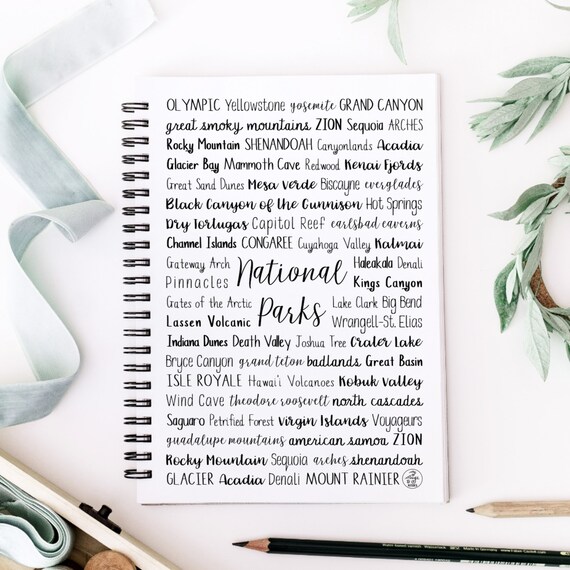 OLYMPIC Yellowstone yosemite GRAND CANYON
great smoky mountains ZION Sequoia ARCHES
Rocky Mountain SHENANDOAH Canyonlands Acadia
Glacier Bay Mammoth Cave Redwood Kenai Fjords
Great Sand Dunes Mesa verde Biscayne everglades
Black Canyon of the Gunnison Hot Springs
Dry Tortugas Capitol Reef carlsbad caverns
Channel Islands CONGAREE Cuyahoga Valley Katmai
Gateway Arch Haleakala Denali
Pinnacles Kings Canyon
National
Gates of the Arctic Lake Clark Big Bend
Parks
Lassen Volcanic Wrangell-St. Elias
Indiana Dunes Death Valley Joshua Tree Crater Lake
Bryce Canyon grand teton badlands Great Basin
ISLE ROYALE Hawai'i Volcanoes Kobuk Valley
Wind Cave theodore roosevelt north cascades
Saguaro Petrified Forest Virgin Islands Voyageurs
guadalupe mountains american samoa ZION
Rocky Mountain Sequoia arches shenandoah
GLACIER Acadia Denali MOUNT RAINIER